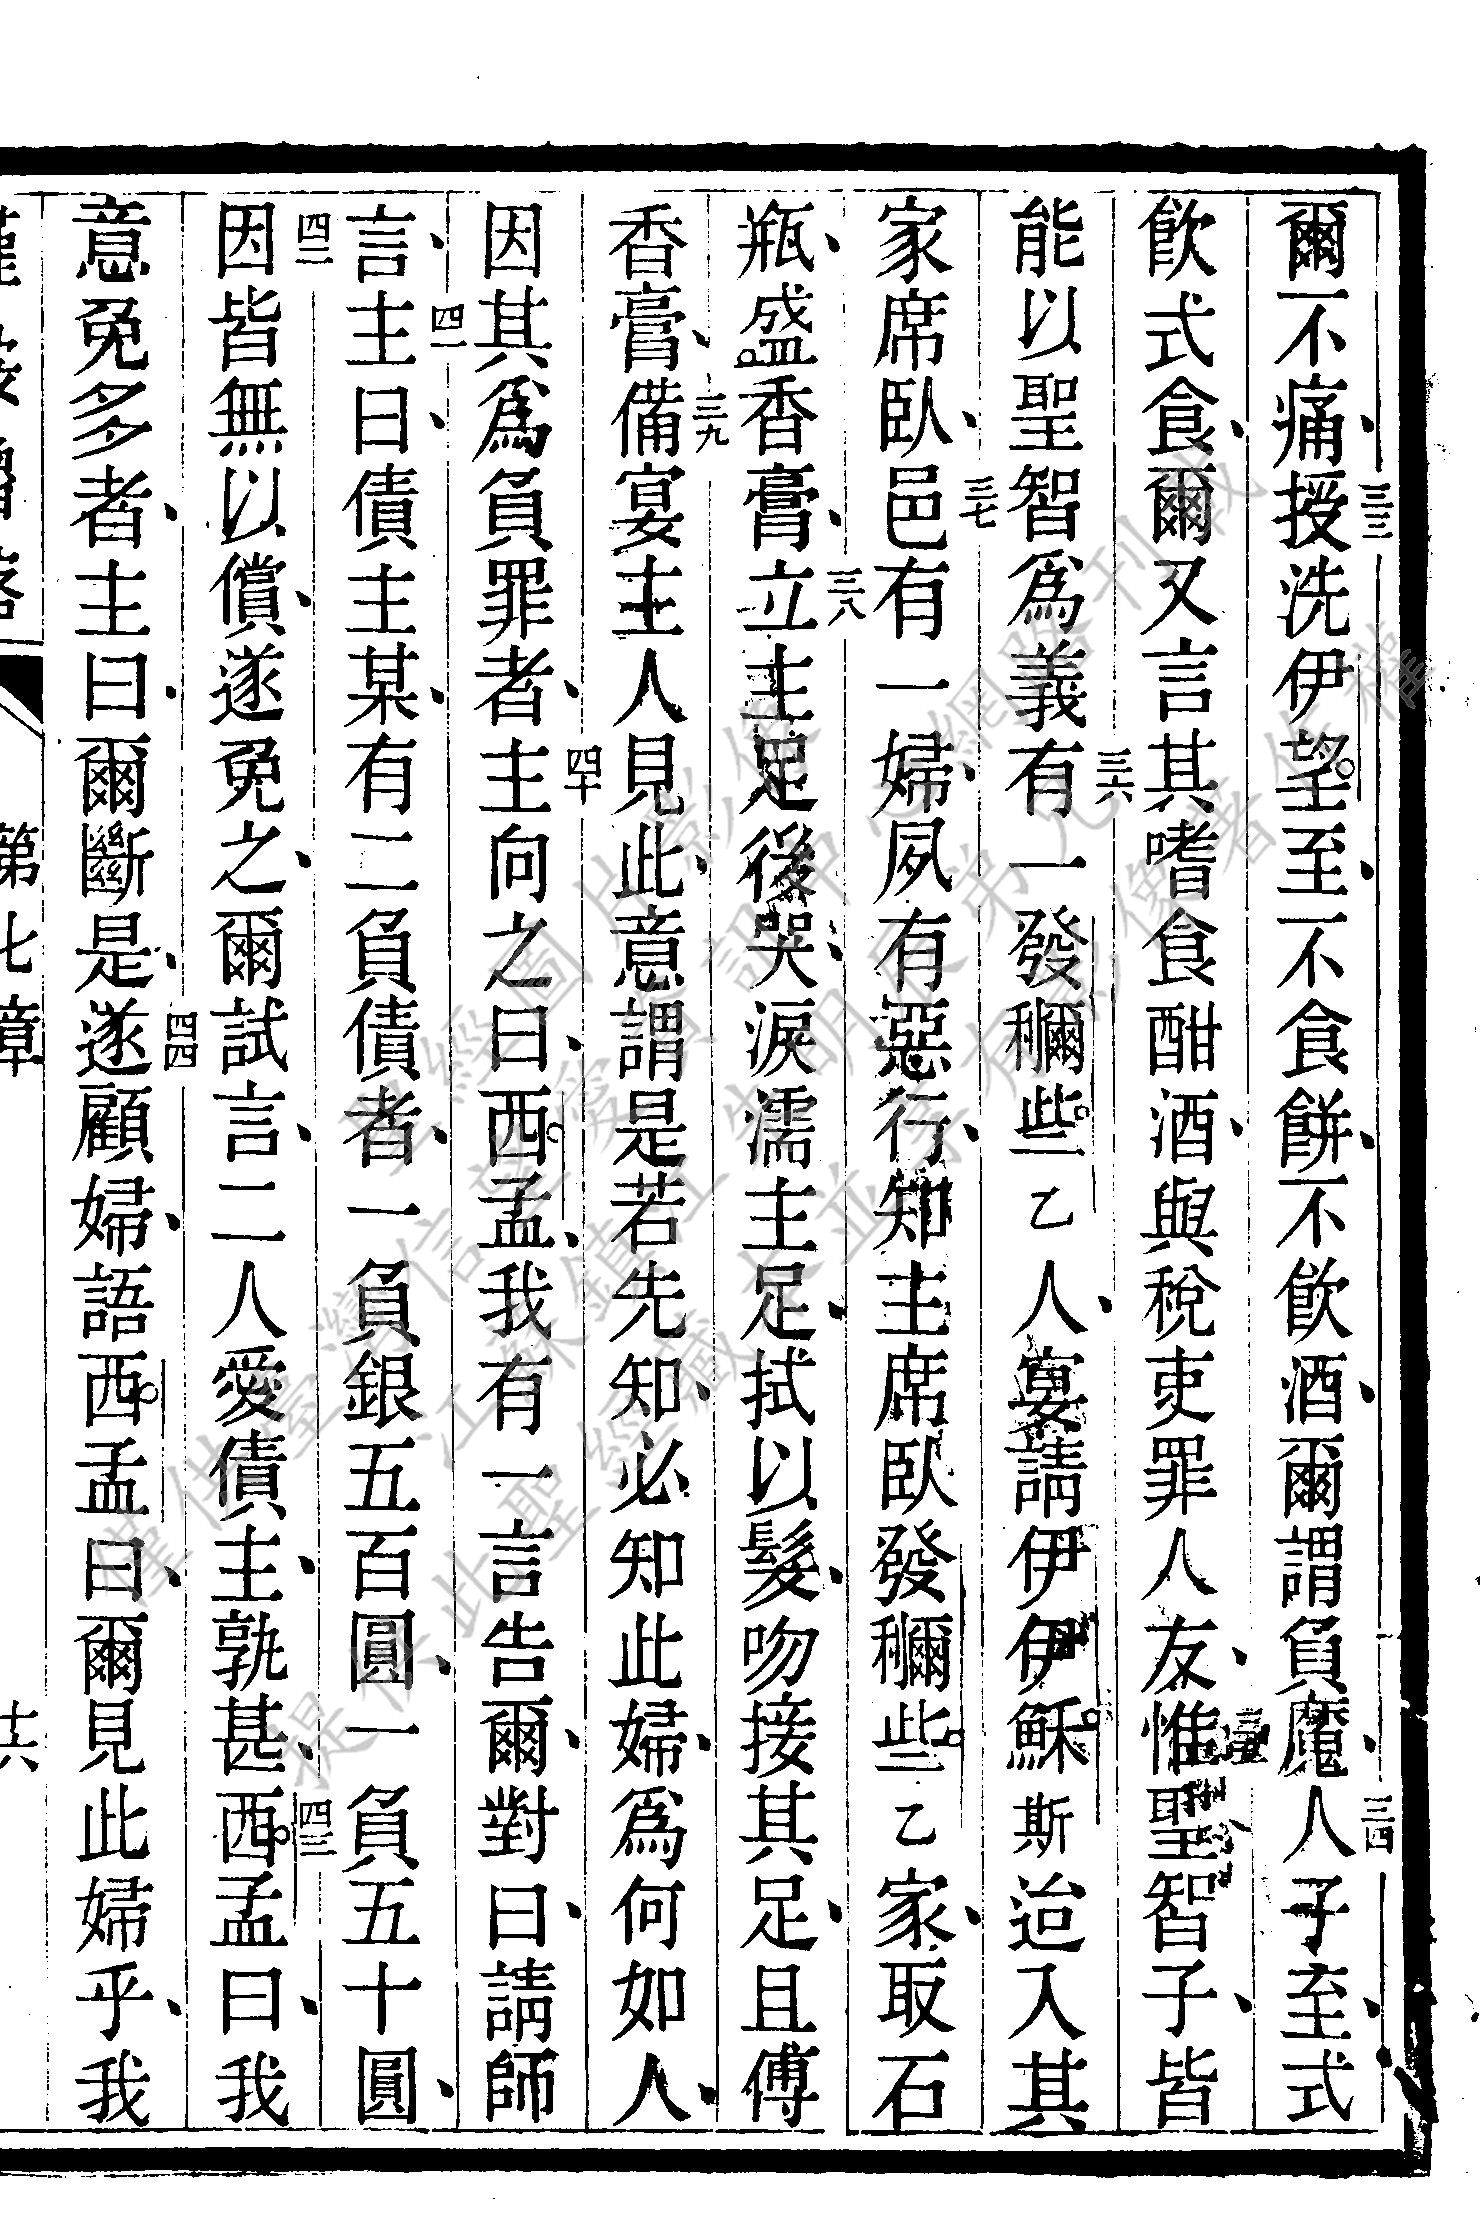 爾不痛、三三授洗伊望至、不食餅、不飮酒、爾謂負魔、三四人子至、式
飮式食、爾又言其嗜食酣酒、與稅吏罪人友、三五惟聖智子、皆
能以聖智爲義三六有一發穪些乙人、宴請伊伊穌斯迨入其
家席臥、三七邑有一婦、夙有惡行、知主席臥發穪些乙家、取石
瓶、盛香膏、三八立主足後哭、淚濡主足、拭以髮、吻接其足、且傅
香膏、三九備宴主人見此、意謂是若先知、必知此婦、爲何如人、
因其爲負罪者、四十主向之曰、西孟、我有一言告爾、對曰、請師
言、四一主曰、債主某、有二負債者、一負銀五百圓、一負五十圓、
四二因皆無以償、遂免之、爾試言、二人愛債主、孰甚、四三西孟曰、我
意免多者、主曰、爾斷是、四四遂顧婦、語西孟曰、爾見此婦乎、我
第七章
僅供臺灣信望愛資訊中心網路刊載